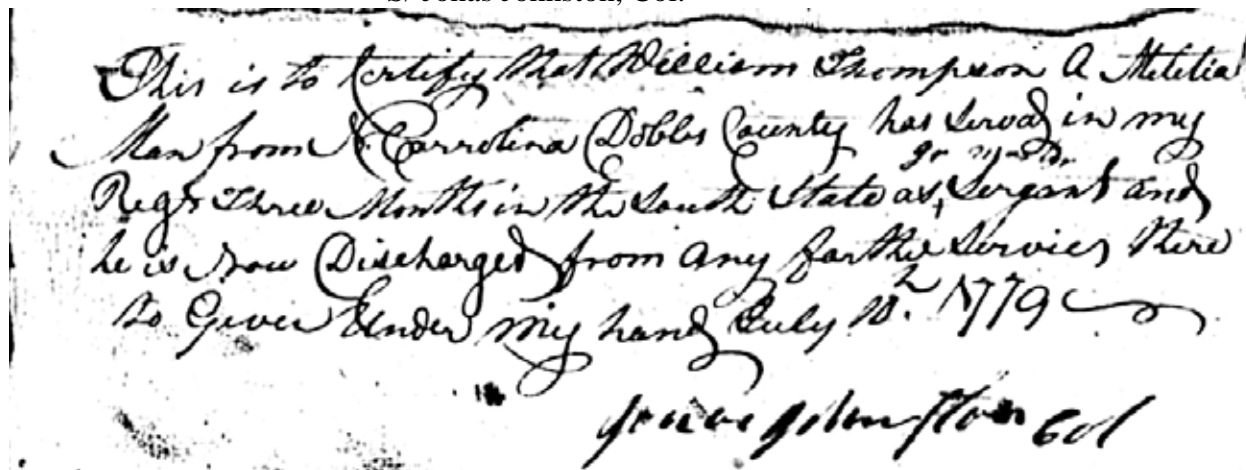 S/ Jonas Johnston, Col.
This is to Certify that William Thompson A Militia
Man from N. Carrolina Dobbs County has Served in my
Qr Mastr
Regt Three Months in the South State as, Sergant and
he is Now Discharged from any farther Services there
to Given Under my hand July 10.h 1779
Jonas Johnston Col